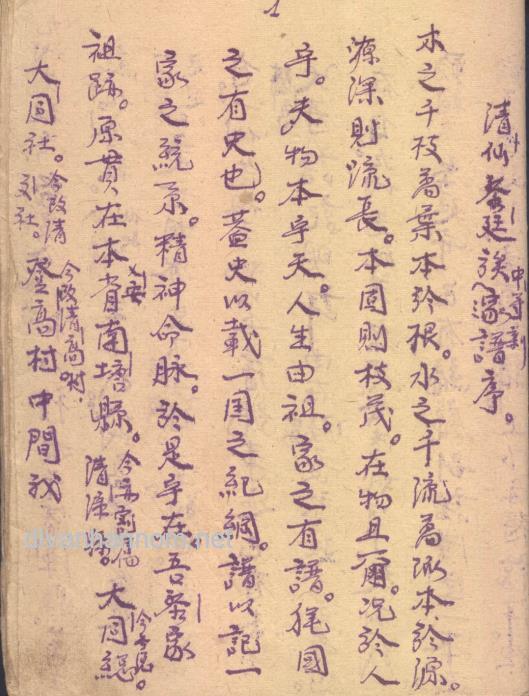 1
清仙峇廷族家譜序。
木之千枝萬葉本於根。水之千流萬派本於源。
源深則流長。本固則枝茂。在物且爾。况於人
乎。夫物本乎天。人生由祖。家之有譜。猶國
之有史也。葢史以載一国之紀綱。譜以記一
家之統系。精神命脉。於是乎在吾峇家
祖跡。原貫在本省南塘縣。大同總。
大同社。今改清社。登高村中間我
今改清高村
divanhannom.net